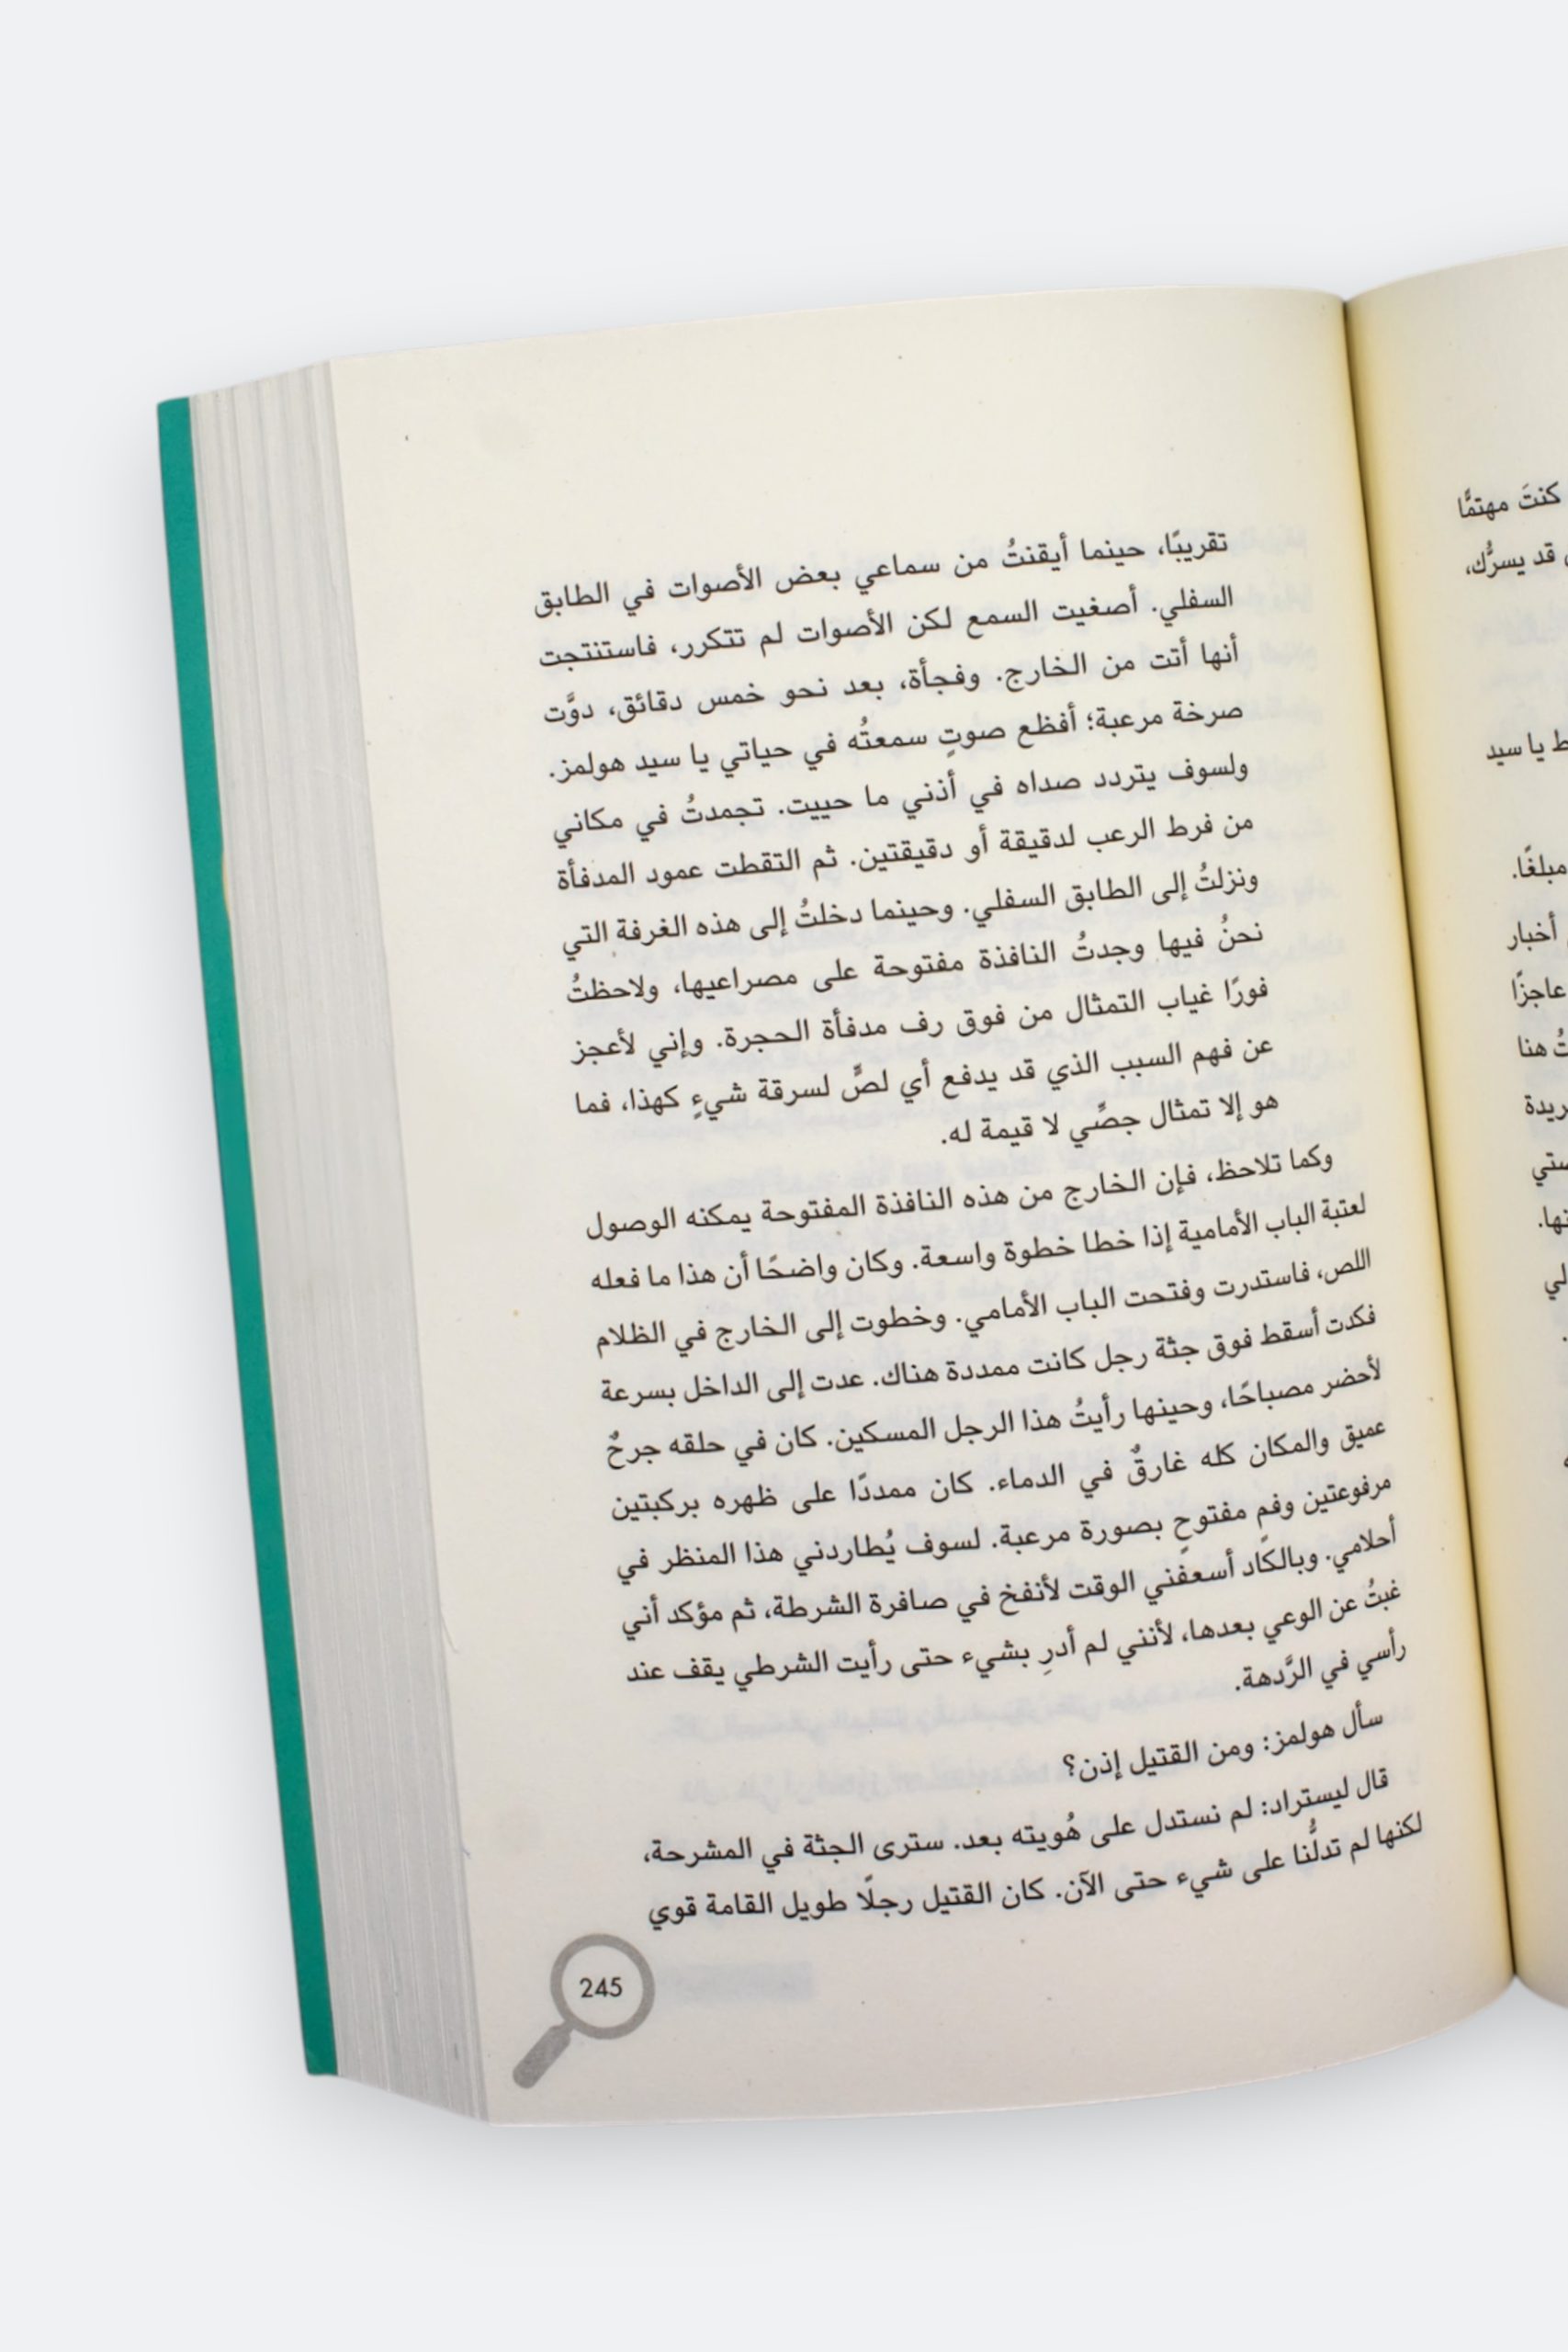 كنتَ مهتمًّا
قد يسرُّك،
يا سيد
مبلغًا.
أخبار
عاجزًا
هنا
تقريبًا، حينما أيقنتُ من سماعي بعض الأصوات في الطابق
السفلي. أصغيت السمع لكن الأصوات لم تتكرر، فاستنتجت
أنها أتت من الخارج. وفجأة، بعد نحو خمس دقائق، دوَّت
صرخة مرعبة؛ أفظع صوتٍ سمعتُه في حياتي يا سيد هولمز.
ولسوف يتردد صداه في أذني ما حييت. تجمدتُ في مكاني
من فرط الرعب لدقيقة أو دقيقتين. ثم التقطت عمود المدفأة
ونزلتُ إلى الطابق السفلي. وحينما دخلتُ إلى هذه الغرفة التي
نحنُ فيها وجدتُ النافذة مفتوحة على مصراعيها، ولاحظتُ
فورًا غياب التمثال من فوق رف مدفأة الحجرة. وإني لأعجز
عن فهم السبب الذي قد يدفع أي لصٍّ لسرقة شيءٍ كهذا، فما
هو إلا تمثال جصِّي لا قيمة له.
وكما تلاحظ، فإن الخارج من هذه النافذة المفتوحة يمكنه الوصول
لعتبة الباب الأمامية إذا خطا خطوة واسعة. وكان واضحًا أن هذا ما فعله
اللص، فاستدرت وفتحت الباب الأمامي. وخطوت إلى الخارج في الظلام
فكدت أسقط فوق جثة رجل كانت ممددة هناك. عدت إلى الداخل بسرعة
لأحضر مصباحًا، وحينها رأيتُ هذا الرجل المسكين. كان في حلقه جرحٌ
عميق والمكان كله غارقٌ في الدماء. كان ممددًا على ظهره بركبتين
مرفوعتين وفمٍ مفتوحٍ بصورة مرعبة. لسوف يُطاردني هذا المنظر في
أحلامي. وبالكاد أسعفني الوقت لأنفخ في صافرة الشرطة، ثم مؤكد أني
غبتُ عن الوعي بعدها، لأنني لم أدرِ بشيء حتى رأيت الشرطي يقف عند
رأسي في الرَّدهة.
سأل هولمز: ومن القتيل إذن؟
قال ليستراد: لم نستدل على هُويته بعد. سترى الجثة في المشرحة،
لكنها لم تدلُّنا على شيء حتى الآن. كان القتيل رجلًا طويل القامة قوي
245